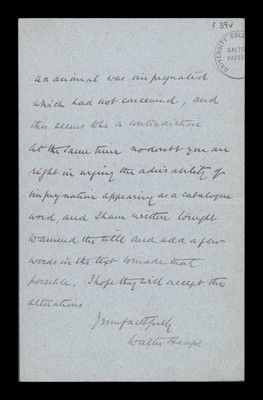 f 39v
UNIVERSITY COLL
GALTON
PAPERS
an animal was impregnated
which had not conceived, and
this seems like a contradiction
At the same time no doubt you are
right in urging the advisability of
impregnation appearing as a catalogue
word, and I have written tonight
to amend the title and add a few
words in the text to make that
possible. I hope they will accept the
alterations
Yours faithfully
Walter Heape